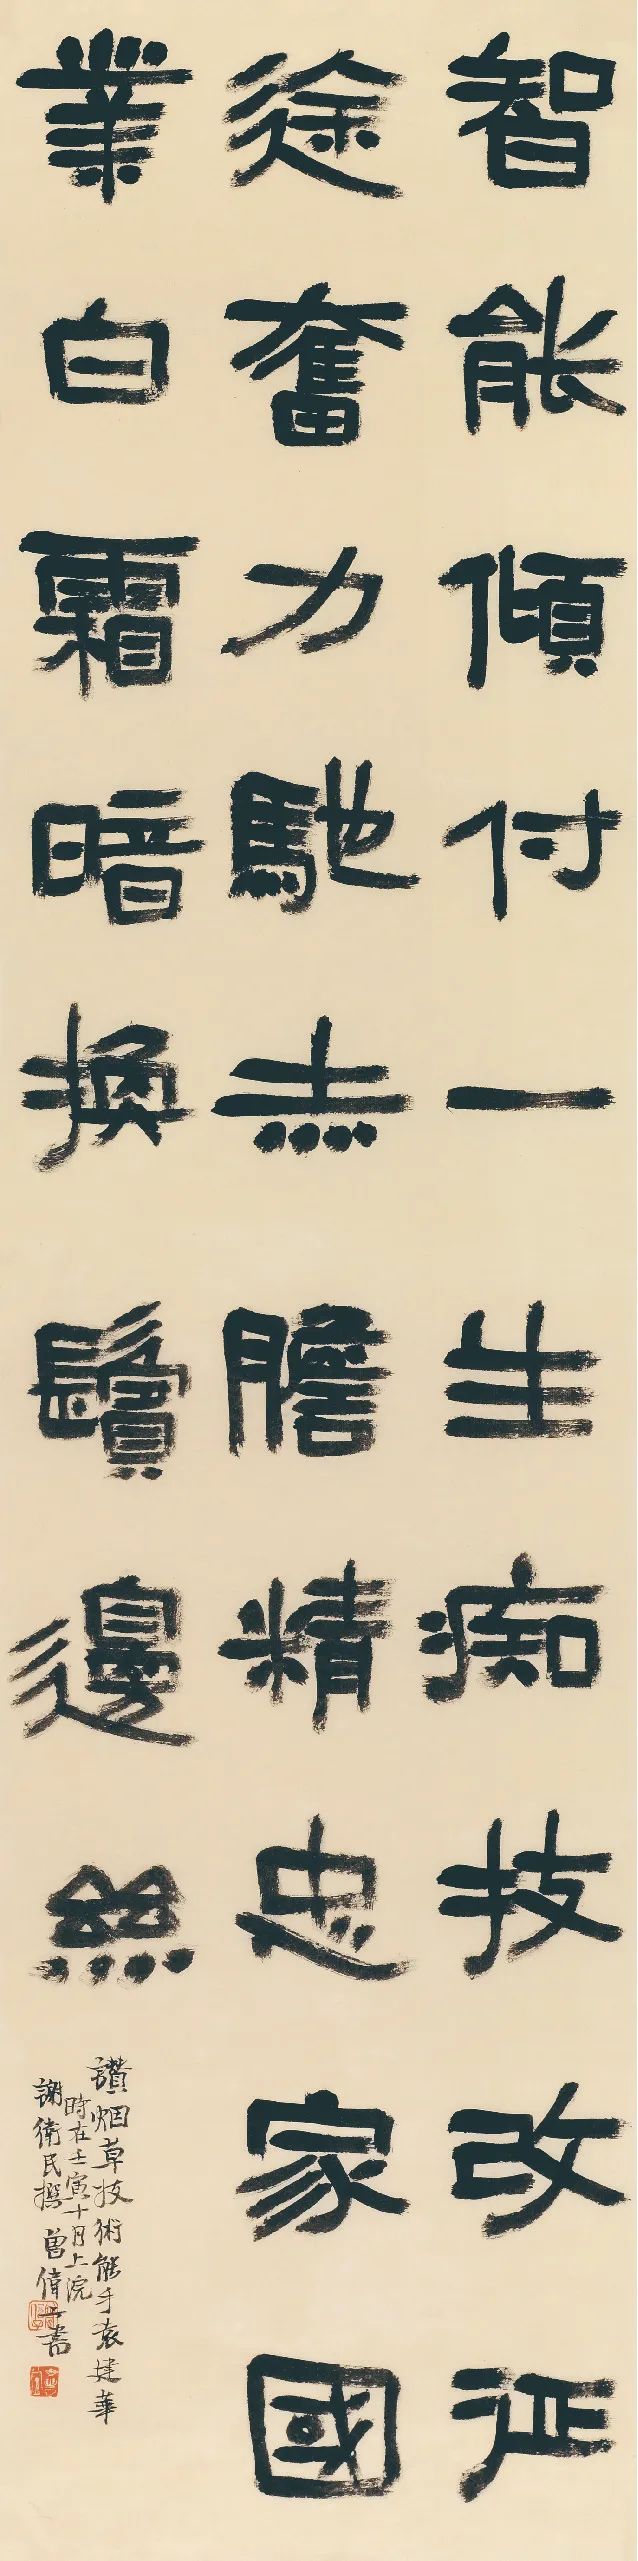 智能傾付一生痴技改征
途奮力馳赤膽精忠家國
業白霜暗換鬢邊絲
讚烟草技術能手袁建華
時在壬寅十月上浣
謝衛民撰 曾偉 書